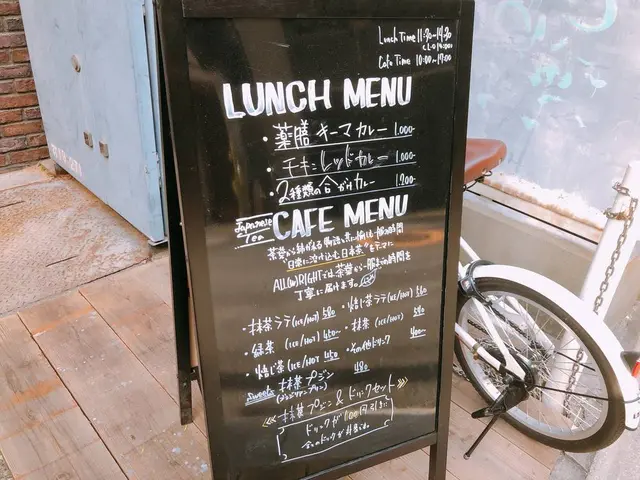 Lunch Time 11:30~14:30
Cafe Time 10:00~17:00
LUNCH MENU
・薬膳キーマカレー 1.000-
・チキンレッドカレー 1.000-
・2種類の合がけカレー 1.200-
Japanese Tea
CAFE MENU
日常に溶け込む日本茶"をテーマに
ALL(W)RIGHTでは茶葉から一服までの時間を
丁寧に届けます。
・抹茶ラテ(ICE/HOT) 580
・焙じ茶ラテ(ICE/HOT) 560
・緑茶(ICE/HOT) 450-
・抹茶(ICE/HOT) 580
・焙じ茶(ICE/HOT) 450
・その他ドリンク 400-
sweets 抹茶プリン 480
<<< 抹茶プリン&ドリンクセット >>>
ドリンクが100円引きに